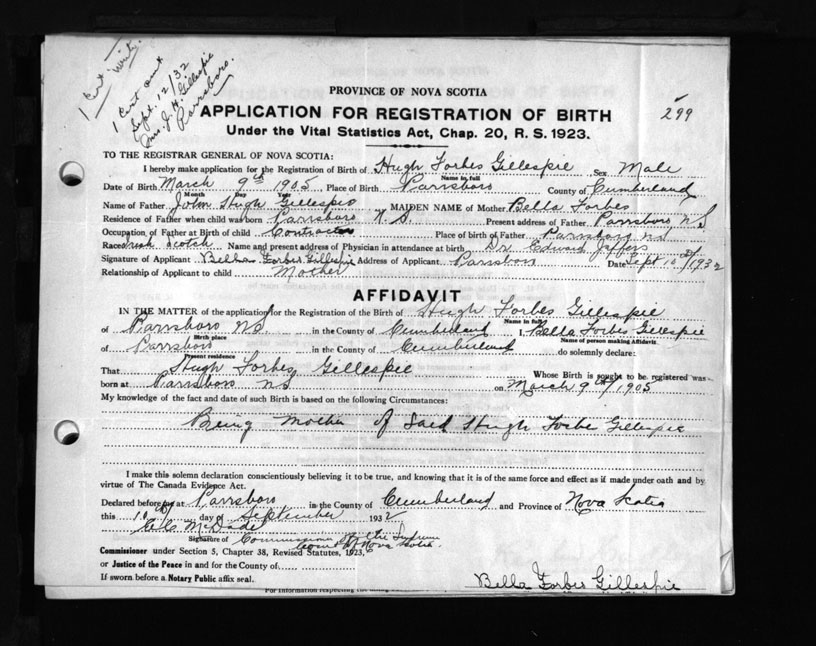 1 Cert write
1 Cert sent
Sept. 12/32
Mrs. J. H. Gillespie
Parrsboro.
299
PROVINCE OF NOVA SCOTIA
APPLICATION FOR REGISTRATION OF BIRTH
Under the Vital Statistics Act, Chap. 20, R. S. 1923.
TO THE REGISTRAR GENERAL OF NOVA SCOTIA:
I hereby make application for the Registration of Birth of Hugh Forbes Gillespie Sex Male
Name in full
Date of Birth March 9th 1905 Place of Birth Parrsboro County of Cumberland
Month Day Year
Name of Father John Hugh Gillespie MAIDEN NAME of Mother Bella Forbes
Residence of Father when child was born Parrsboro N.S. Present address of Father Parrsboro NS
Occupation of Father at Birth of child Contractor Place of birth of Father Parrsboro NS
Race Scotch Name and present address of Physician in attendance at birth Dr Edward
Signature of Applicant Bella Forbes Gillespie Address of Applicant Parrsboro Date Sept 10th/1932
Relationship of Applicant to child Mother
AFFIDAVIT
IN THE MATTER of the application for the Registration of the Birth of Hugh Forbes Gillespie
Name in full
of Parrsboro NS. in the County of Cumberland I, Bella Forbes Gillespie
Birth place Name of person making Affidavit.
of Parrsboro in the County of Cumberland do solemnly declare:
Present residence
That Hugh Forbes Gillespie Whose Birth is sought to be registered was
born at Parrsboro NS on March 9th/1905
My knowledge of the fact and date of such Birth is based on the following Circumstances:
Being Mother of Said Hugh Forbes Gillespie
I make this solemn declaration conscientiously believing it to be true, and knowing that it is of the same force and effect as if made under oath and by
virtue of The Canada Evidence Act.
Declared before me at Parrsboro in the County of Cumberland and Province of Nova Scotia
this 10th day of September 1932
McDade
Signature of Commissioner of the Supreme
Court of Nova Scotia
Commissioner under Section 5, Chapter 38, Revised Statutes, 1923,
or Justice of the Peace in and for the County of
If sworn before a Notary Public affix seal.
Bella Forbes Gillespie